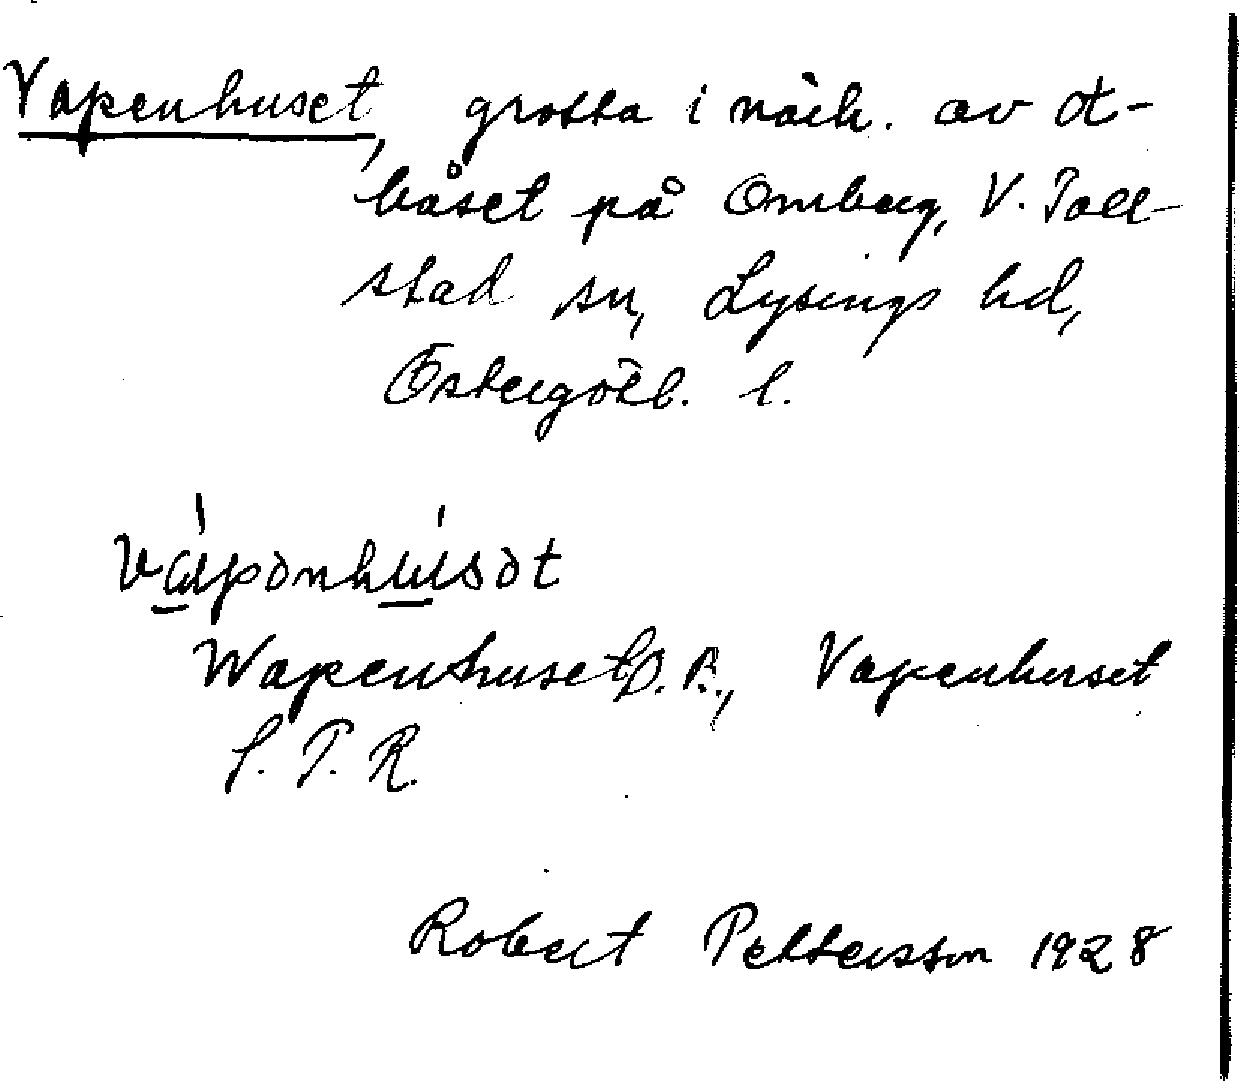 Vapenhuset, grotta i närh. av Ot-
båset på Omberg, V. Toll-
stad sn, Lysings hd,
Östergötl. l.
våpənhúsət
Wapenhuset D. R., Vapenhuset
S. T. R.
Robert Pettersson 1928